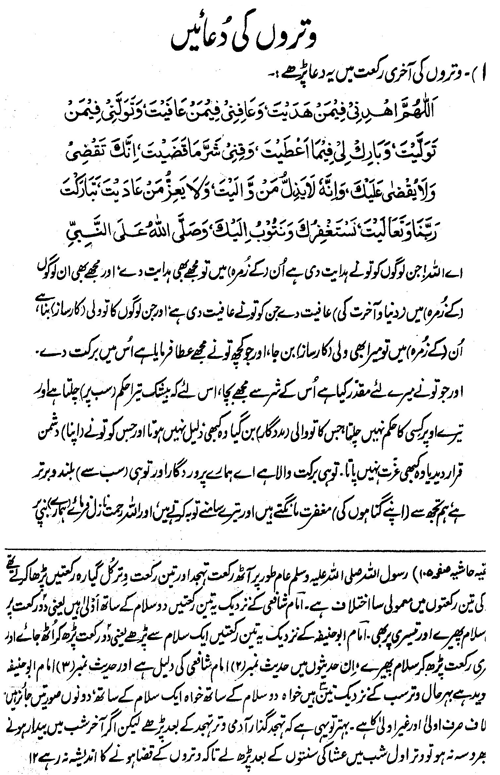 وتروں کی دُعائیں
(۱)۔ وتروں کی آخری رکعت میں یہ دعا پڑھے :۔
اَللّٰهُمَّ اهْدِنِيْ فِيْمَنْ هَدَيْتَ، وَعَافِنِيْ فِيْمَنْ عَافَيْتَ، وَتَوَلَّنِيْ فِيْمَنْ
تَوَلَّيْتَ، وَبَارِكْ لِيْ فِيْمَا اَعْطَيْتَ، وَقِنِيْ شَرَّ مَا قَضَيْتَ، اِنَّكَ تَقْضِيْ
وَلَا يُقْضٰى عَلَيْكَ، وَاِنَّهٗ لَا يَذِلُّ مَنْ وَّالَيْتَ، وَلَا يَعِزُّ مَنْ عَادَيْتَ تَبَارَكْتَ
رَبَّنَا وَتَعَالَيْتَ، نَسْتَغْفِرُكَ وَنَتُوْبُ اِلَيْكَ، وَصَلَّى اللّٰهُ عَلَى النَّبِيِّ
اے اللہ! جن لوگوں کو تو نے ہدایت دی ہے اُن (کے زمرہ) میں تو مجھے بھی ہدایت دے، اور مجھے بھی ان لوگوں
(کے زُمرہ) میں (دنیا و آخرت کی) عافیت دے جن کو تو نے عافیت دی ہے، اور جن لوگوں کا تو ولی (کارساز) بنا ہے
اُن (کے زمرہ) میں تو میرا بھی ولی (کارساز) بن جا، اور جو کچھ تو نے مجھے عطا فرمایا ہے اُس میں برکت دے۔
اور جو تو نے میرے لئے مقدر کیا ہے اُس کے شر سے مجھے بچا، اس لئے کہ بیشک تیرا حکم (سب پر) چلتا ہے اور
تیرے اوپر کسی کا حکم نہیں چلتا جس کا تو والی (مددگار) بن گیا وہ کبھی ذلیل نہیں ہوتا اور جس کو تو نے (اپنا) دشمن
قرار دیدیا وہ کبھی عزت نہیں پاتا۔ تو ہی برکت والا ہے اے ہمارے پروردگار اور تو ہی (سب سے) بلند و برتر
ہے ہم تجھ سے (اپنے گناہوں کی) مغفرت مانگتے ہیں اور تیرے سامنے توبہ کرتے ہیں اور اللہ رحمت نازل فرمائے ہمارے نبی پر
قیہ حاشیہ صفحہ ۱۰۵) رسول اللہ صلی اللہ علیہ وسلم عام طور پر آٹھ رکعت تہجد اور تین رکعت وتر کل گیارہ رکعتیں پڑھا کرتے تھے
کی تین رکعتوں میں معمولی سا اختلاف ہے۔ امام شافعی کے نزدیک یہ تین رکعتیں دو سلام کے ساتھ اَولیٰ ہیں یعنی دو رکعت پر
سلام پھیرے اور تیسری پر بھی۔ امام ابو حنیفہ کے نزدیک یہ تین رکعتیں ایک سلام سے پڑھے یعنی دو رکعت پڑھ کر اٹھ جائے اور
ری رکعت پڑھ کر سلام پھیرے۔ ان حدیثوں میں حدیث نمبر (۲) امام شافعی کی دلیل ہے اور حدیث نمبر (۳) امام ابو حنیفہ
وید ہے بہر حال وتر سب کے نزدیک تین ہیں خواہ دو سلام کے ساتھ خواہ ایک سلام کے ساتھ، دونوں صورتیں جائز ہیں
لاف صرف اولیٰ اور غیر اولیٰ کا ہے۔ بہتر تو یہی ہے کہ تہجد گذار آدمی وتر تہجد کے بعد پڑھے لیکن اگر آخر شب میں بیدار ہونے
بھروسہ نہ ہو تو وتر اول شب میں عشا کی سنتوں کے بعد پڑھ لے تاکہ وتروں کے قضا ہونے کا اندیشہ نہ رہے ۱۲